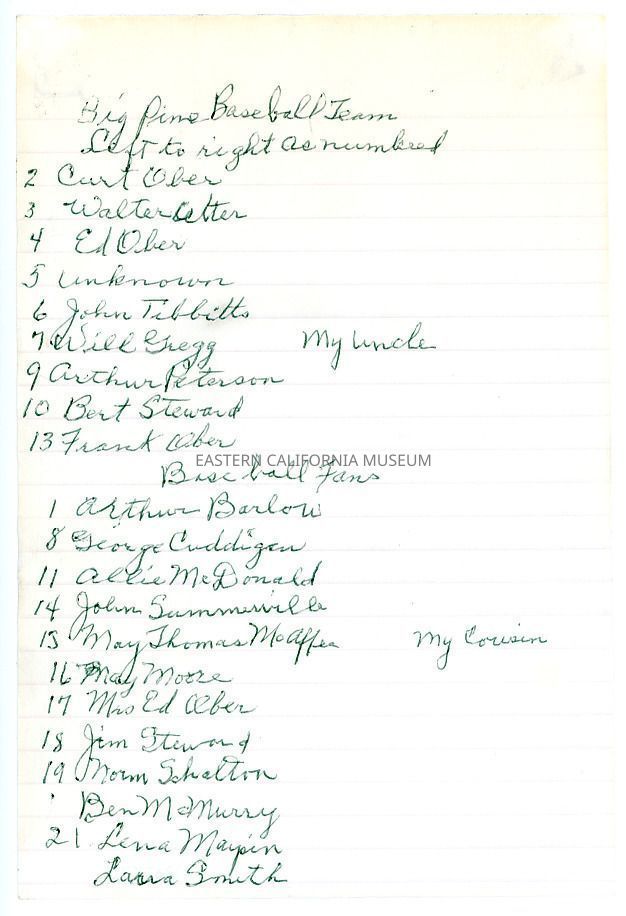 Big Pine Baseball Team
Left to right as numbered
2 Curt Ober
3 Walter Otter
4 Ed Ober
5 unknown
6 John Tibbitts
7 Will Gregg My uncle
9 Arthur Peterson
10 Bert Steward
13 Frank Ober
EASTERN CALIFORNIA MUSEUM
Baseball Fans
1 Arthur Barlow
8 George Cuddigan
11 Allie McDonald
14 John Summerville
15 May Thomas McAffee My Cousin
16 May Moore
17 Mrs Ed Ober
18 Jim Steward
19 Norm Schalton
Ben McMurry
21 Lena Maypin
Laura Smith